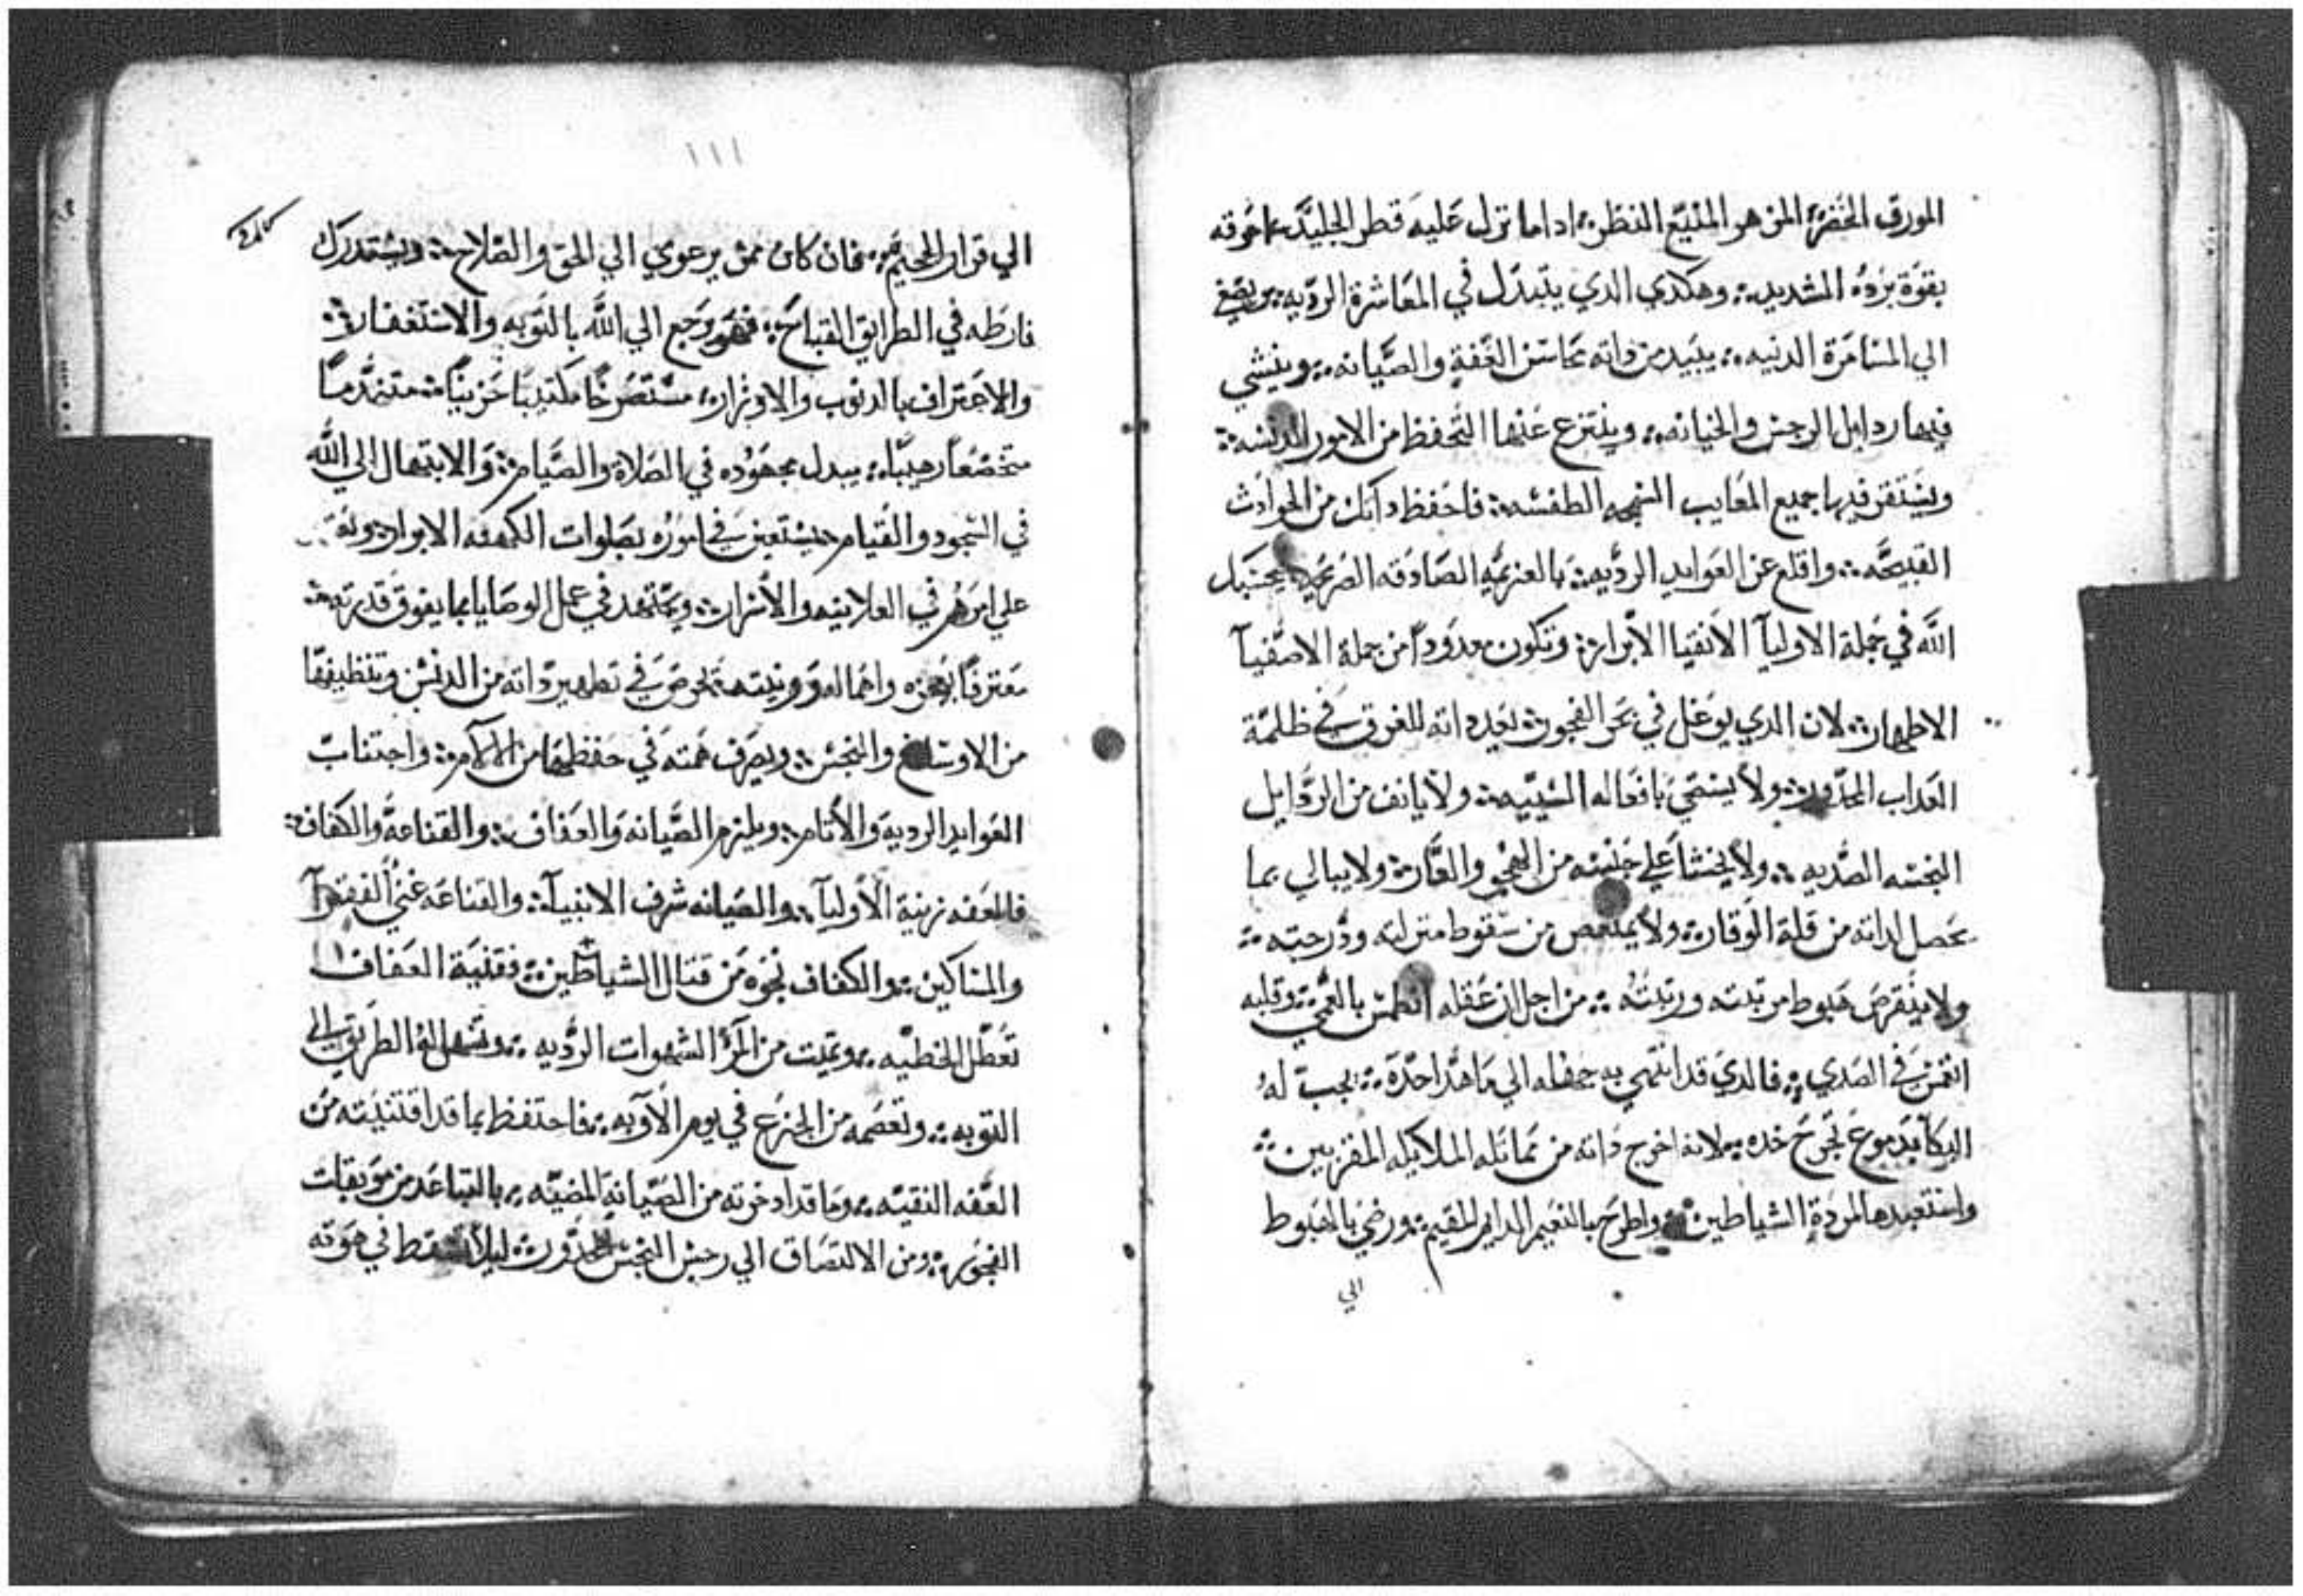 المورق الخضرة المزهر المنيع النظر؛ ادا ما نزل عليه قطر الجليد احرقه
بقوة برده الشديد؛ وهكدي الدي يتبدل في المعاشرة الرديه؛ ويصغ
الي المسامرة الدنيه؛ يبيد من داته محاسن العفة والصيانه؛ وينشي
فيها ردايل الرجس والخيانه؛ وينتزع عنها التحفظ من الامور الدنسه؛
ويستقر فيها جميع المعايب السمجه الطفسه؛ فاحفظ داتك من الحوادث
القبيحه؛ واقلع عن العوايد الرديه؛ بالعزيمه الصادقه الصريحه
الله في جملة الاوليآ الانقيا الابرار؛ وتكون معدودا من جملة الاصفيآ
الاطهار؛ لان الدي يوغل في بحر الفجور؛ يعد داته للغرق في ظلمة
العداب المحدور؛ ولا يستحي بافعاله الشنيه؛ ولا يانف من الردايل
النجسه الصديه؛ ولا يخشا علي من الهجو والعار؛ ولا يبالي بما
يحصل لداته من قلة الوقار؛ ولا يمتعص من سقوط منزلته ودرجته؛
ولا ينقرض هبوط مرتبته ورتبته؛ من اجل ان عقله انطمس بالعمي؛ وقلبه
انغمس في الصدي؛ فالدي قد انتهي به جهله الي ما هدا حده؛ يجب له
البكا بدموع تجرح خده؛ لانه اخرج داته من مماتله الملايكه المقربين؛
واستعبدها لمردة الشياطين؛ واطرح بالنعيم الدايم المقيم؛ ورضي بالهبوط
الي
١١١
الي قرار الجحيم؛ فان كان ممن يرعوي الي الحق والصلاح؛ ويستدرك
فارطه في الطرايق القباح؛ فهو يرجع الي الله بالتوبه والاستغفار؛
والاعتراف بالدنوب والاوزار؛ مستصرخا مكتيبا حزينا؛ متندما
متخضعا رهيبا؛ يبدل مجهوده في الصلاة والصيام؛ والابتهال الي الله
في السجود والقيام؛ يستعين في اموره بصلوات الكهنه الابرار؛
علي امرهم في العلانيه والاسرار؛ ويجتهد في عمل الوصايا بما يفوق قدرته؛
معترفا بعجزه واهماله وونيته؛ يحرص في تطهير داته من الدنس وتنظيفها
من الاوساخ والنجس؛ ويصرف همته في حفظها من الالام؛ واجتناب
العوايد الردية والاتام؛ ويلزم الصيانه والعفاف؛ والقناعة والكفاف؛
فالعفه زينة الاوليآ؛ والصيانه شرف الانبيآ؛ والقناعه غني الفقرآ
والمساكين؛ والكفاف نجوه من قتال الشياطين؛ فقنية العفاف
تعطل الخطيه؛ وتميت من المرء الشهوات الرديه؛ وتسهل له الطريق الي
التوبه؛ وتعصمه من الجزع في يوم الاوبه؛ فاحتفظ بما قد اقتنيته من
العفه النقيه؛ وما قد ادخرته من الصيانه المضيه؛ بالتباعد من موبقات
الفجور؛ ومن الالتصاق الي رجس النجس المحدور؛ ليلا تسقط في هوته